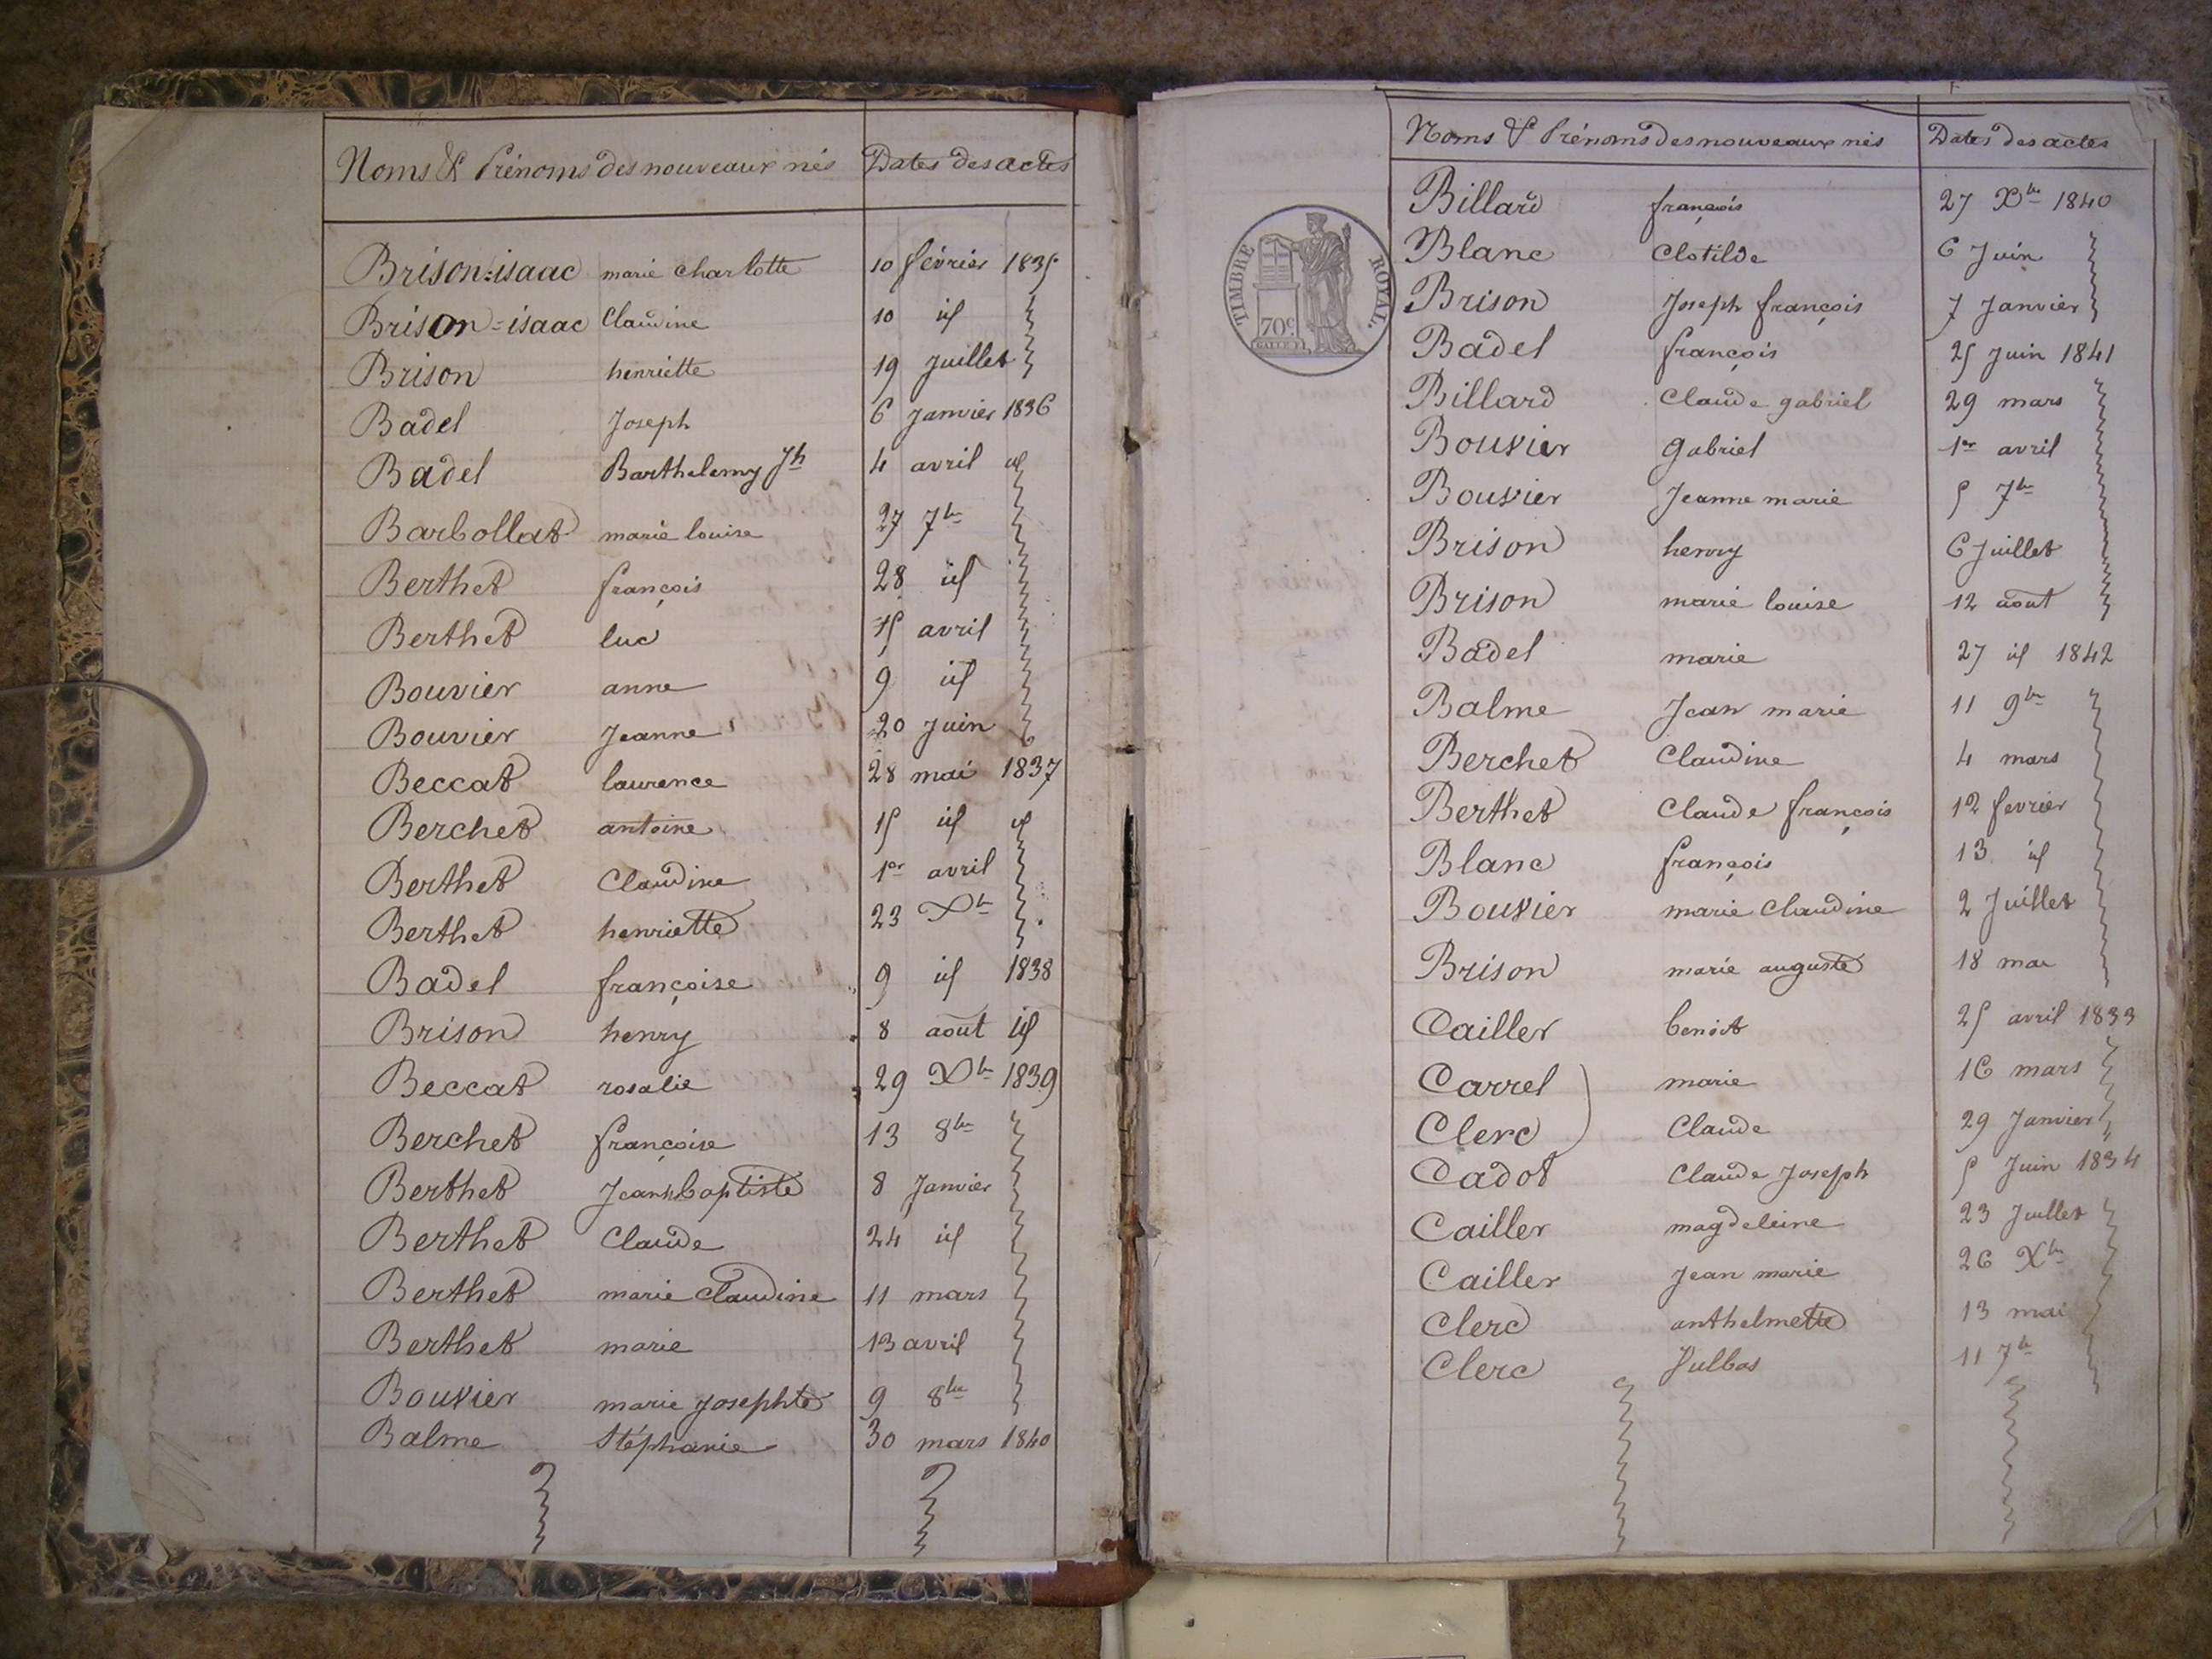 Noms & Prénoms des nouveaux nés Dates des actes
Brison=isaac marie charlotte 10 février 1835
Brison=isaac Claudine 10 id
Brison henriette 19 Juillet
Badel Joseph 6 Janvier 1836
Badel Barthelemy Jh 4 avril id
Barbollat marie louise 27 7bre
Berthet françois 28 id
Berthet luc 15 avril
Bouvier anne 9 id
Bouvier Jeanne 20 Juin
Beccat laurence 28 mai 1837
Berchet antoine 15 id id
Berthet Claudine 1er avril
Berthet henriette 23 Xbre
Badel françoise 9 id 1838
Brison henry 8 août id
Beccat rosalie 29 Xbre 1839
Berchet françoise 13 8bre
Berthet Jean baptiste 8 Janvier
Berthet Claude 24 id
Berthet marie Claudine 11 mars
Berthet marie 13 avril
Bouvier marie Josephte 9 8bre
Balme Stéphanie 30 mars 1840
Noms & Prénoms des nouveaux nés Dates des actes
Billard françois 27 Xbre 1840
TIMBRE ROYAL.
70c
Blanc Clotilde 6 Juin
Brison Joseph françois 7 Janvier
Badel françois 25 Juin 1841
Billard Claude gabriel 29 mars
Bouvier gabriel 1er avril
Bouvier Jeanne marie 5 7bre
Brison henry 6 Juillet
Brison marie louise 12 août
Badel marie 27 id 1842
Balme Jean marie 11 9bre
Berchet Claudine 4 mars
Berthet Claude françois 12 fevrier
Blanc françois 13 id
Bouvier marie Claudine 2 Juillet
Brison marie auguste 18 mai
Cailler benoit 25 avril 1833
Carrel marie 16 mars
Clerc Claude 29 Janvier
Cadot Claude Joseph 5 Juin 1834
Cailler magdeleine 23 Juillet
Cailler Jean marie 26 Xbre
Clerc anthelmette 13 mai
Clerc 11 7bre